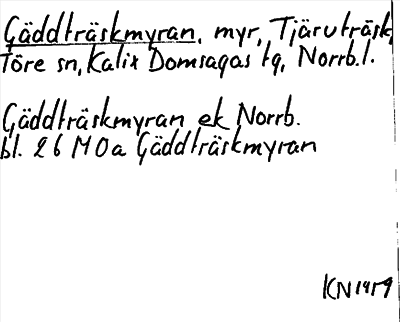 Gäddträskmyran, myr, Tjäruträsk,
Töre sn, Kalix Domsagas tg, Norrb.l.
Gäddträskmyran ek Norrb.
bl. 26 M 0a Gäddträskmyran
KN 1979